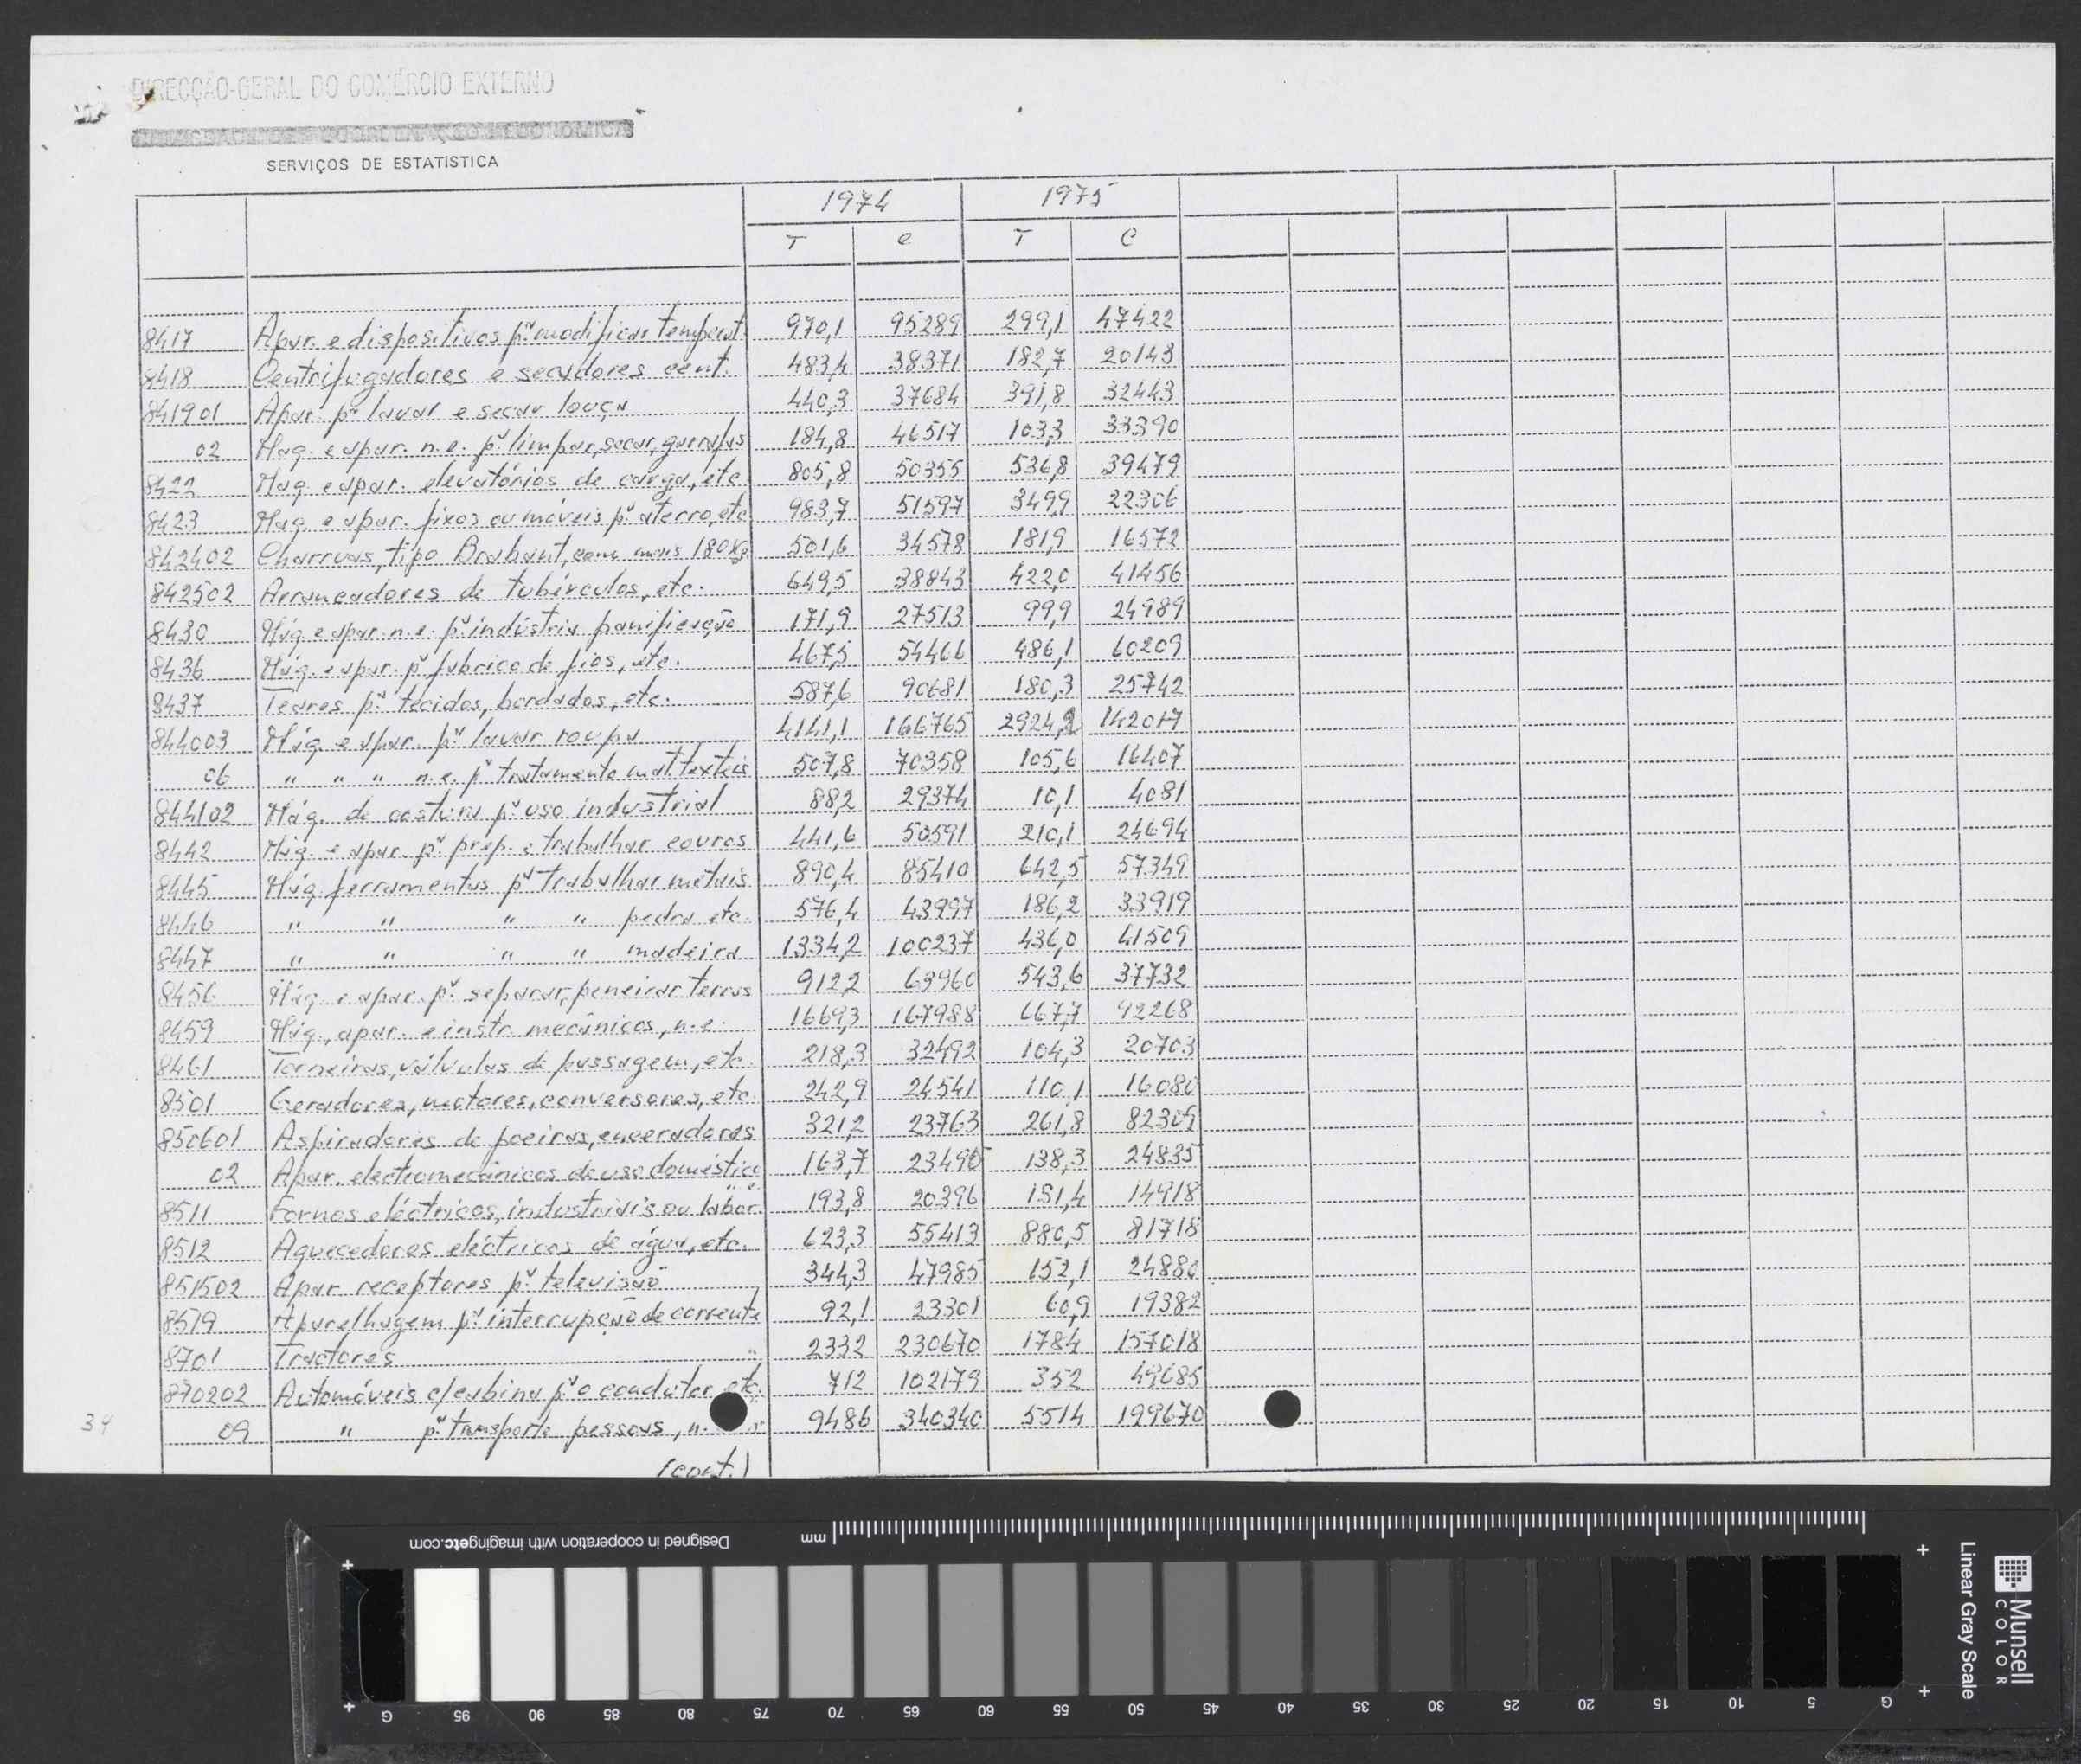 DIRECÇÃO-GERAL DO COMÉRCIO EXTERNO
SERVIÇOS DE ESTATÍSTICA
1974 1975
T C T C
8417 Apar. e dispositivos pª modificar temperat. 970,1 95289 299,1 47422
8418 Centrifugadores e secadores cent. 483,4 38371 182,7 20143
841901 Apar. pª lavar e secar louça 440,3 37684 391,8 32443
02 Maq. e apar. n.e. pª limpar, secar, garrafas 184,8 46517 103,3 33390
8422 Maq. e apar. elevatórios de carga, etc. 805,8 50355 536,8 39479
8423 Maq. e apar. fixos ou móveis pª aterro, etc 983,7 51597 349,9 22306
842402 Charruas, tipo Brabant, com mais 180 Kg 501,6 34578 181,9 16572
842502 Arrancadores de tubérculos, etc. 649,5 38843 422,0 41456
8430 Máq. e apar. n.e. pª indústria panificação 171,9 27513 99,9 24989
8436 Máq. e apar. pª fabrico de fios, etc. 467,5 54466 486,1 60209
8437 Teares pª tecidos, bordados, etc. 587,6 90681 180,3 25742
844003 Máq. e apar. pª lavar roupa 4141,1 166765 2924,2 142017
06 " " " n.e. pª tratamento mat. texteis 507,8 70358 105,6 16407
844102 Máq. de costura pª uso industrial 88,2 29374 10,1 4081
8442 Máq. e apar. pª prep. e trabalhar couros 441,6 50591 210,1 24694
8445 Máq. ferramentas pª trabalhar metais 890,4 85410 642,5 57349
8446 " " " " pedra etc. 576,4 43997 186,2 33919
8447 " " " " madeira 1334,2 100237 436,0 41509
8456 Máq. e apar. pª separar, peneirar terras 912,2 63960 543,6 37732
8459 Máq., apar. e instr. mecânicos, n.e. 1669,3 167988 667,7 92268
8461 Torneiras, válvulas de passagem, etc. 218,3 32492 104,3 20703
8501 Geradores, motores, conversores, etc. 242,9 24541 110,1 16080
850601 Aspiradores de poeiras, enceradoras 321,2 23763 261,8 82309
02 Apar. electromecânicos de uso doméstico 163,7 23496 138,3 24835
8511 Fornos eléctricos, industriais ou labor. 193,8 20396 151,4 14918
8512 Aquecedores eléctricos de água, etc. 623,3 55413 880,5 81718
851502 Apar receptores pª televisão 344,3 47985 152,1 24880
8519 Aparelhagem pª interrupção de corrente 92,1 23301 60,9 19382
8701 Tractores 2332 230670 1784 157018
870202 Automóveis c/cabina pª o condutor, etc. 712 102179 352 49685
09 " pª transporte pessoas, n. 9486 340340 5514 199670
34
(cont.)
Designed in cooperation with imagingetc.com
mm
Linear Gray Scale
Munsell
COLOR
G 95 90 85 80 75 70 65 60 55 50 45 40 35 30 25 20 15 10 5 G